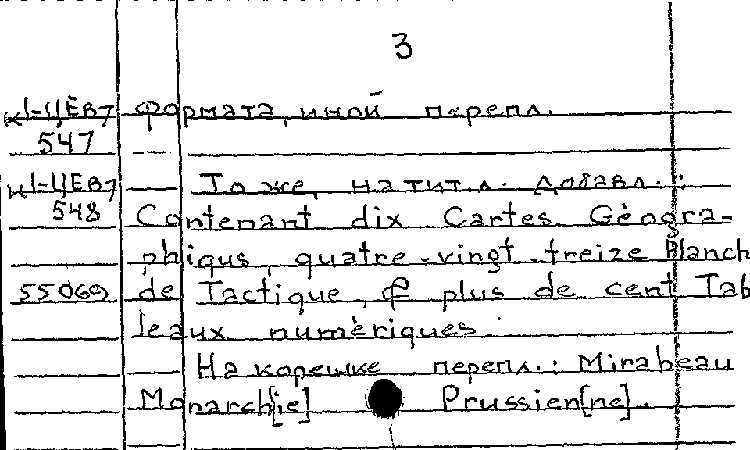 3
к1-ЦЕВ7 формата, иной перепл.
547
к1-ЦЕВ7 — То же, на тит. л. добавл.:
548 Contenant dix Cartes Géogra-
phiqus, quatre-vingt-treize Planch
55069 de Tactique, & plus de cent Tab
leaux numériques.
На корешке перепл.: Mirabeau
Monarch[ie] Prussien[ne].